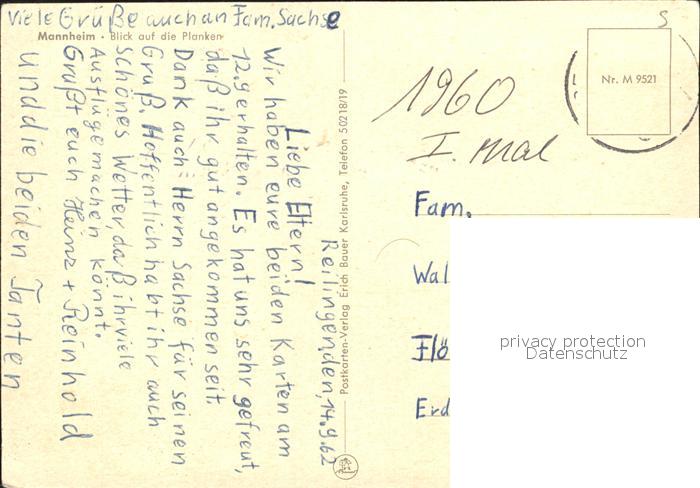 Viele Grüße auch an Fam. Sachse
Mannheim · Blick auf die Planken
Reilingen den, 14.9.62
Liebe Eltern!
Wir haben eure beiden Karten am
12.9 erhalten. Es hat uns sehr gefreut,
daß ihr gut angekommen seit.
Dank auch Herrn Sachse für seinen
Gruß. Hoffentlich habt ihr auch
Schönes Wetter, daß ihr viele
Ausflüge machen könnt.
Grüßt euch Heinz + Reinhold
und die beiden Tanten
Postkarten-Verlag Erich Bauer Karlsruhe, Telefon 50218/19
S
Nr. M 9521
1960
I. mal
Fam.
Wal
Flö
Erd
privacy protection
Datenschutz